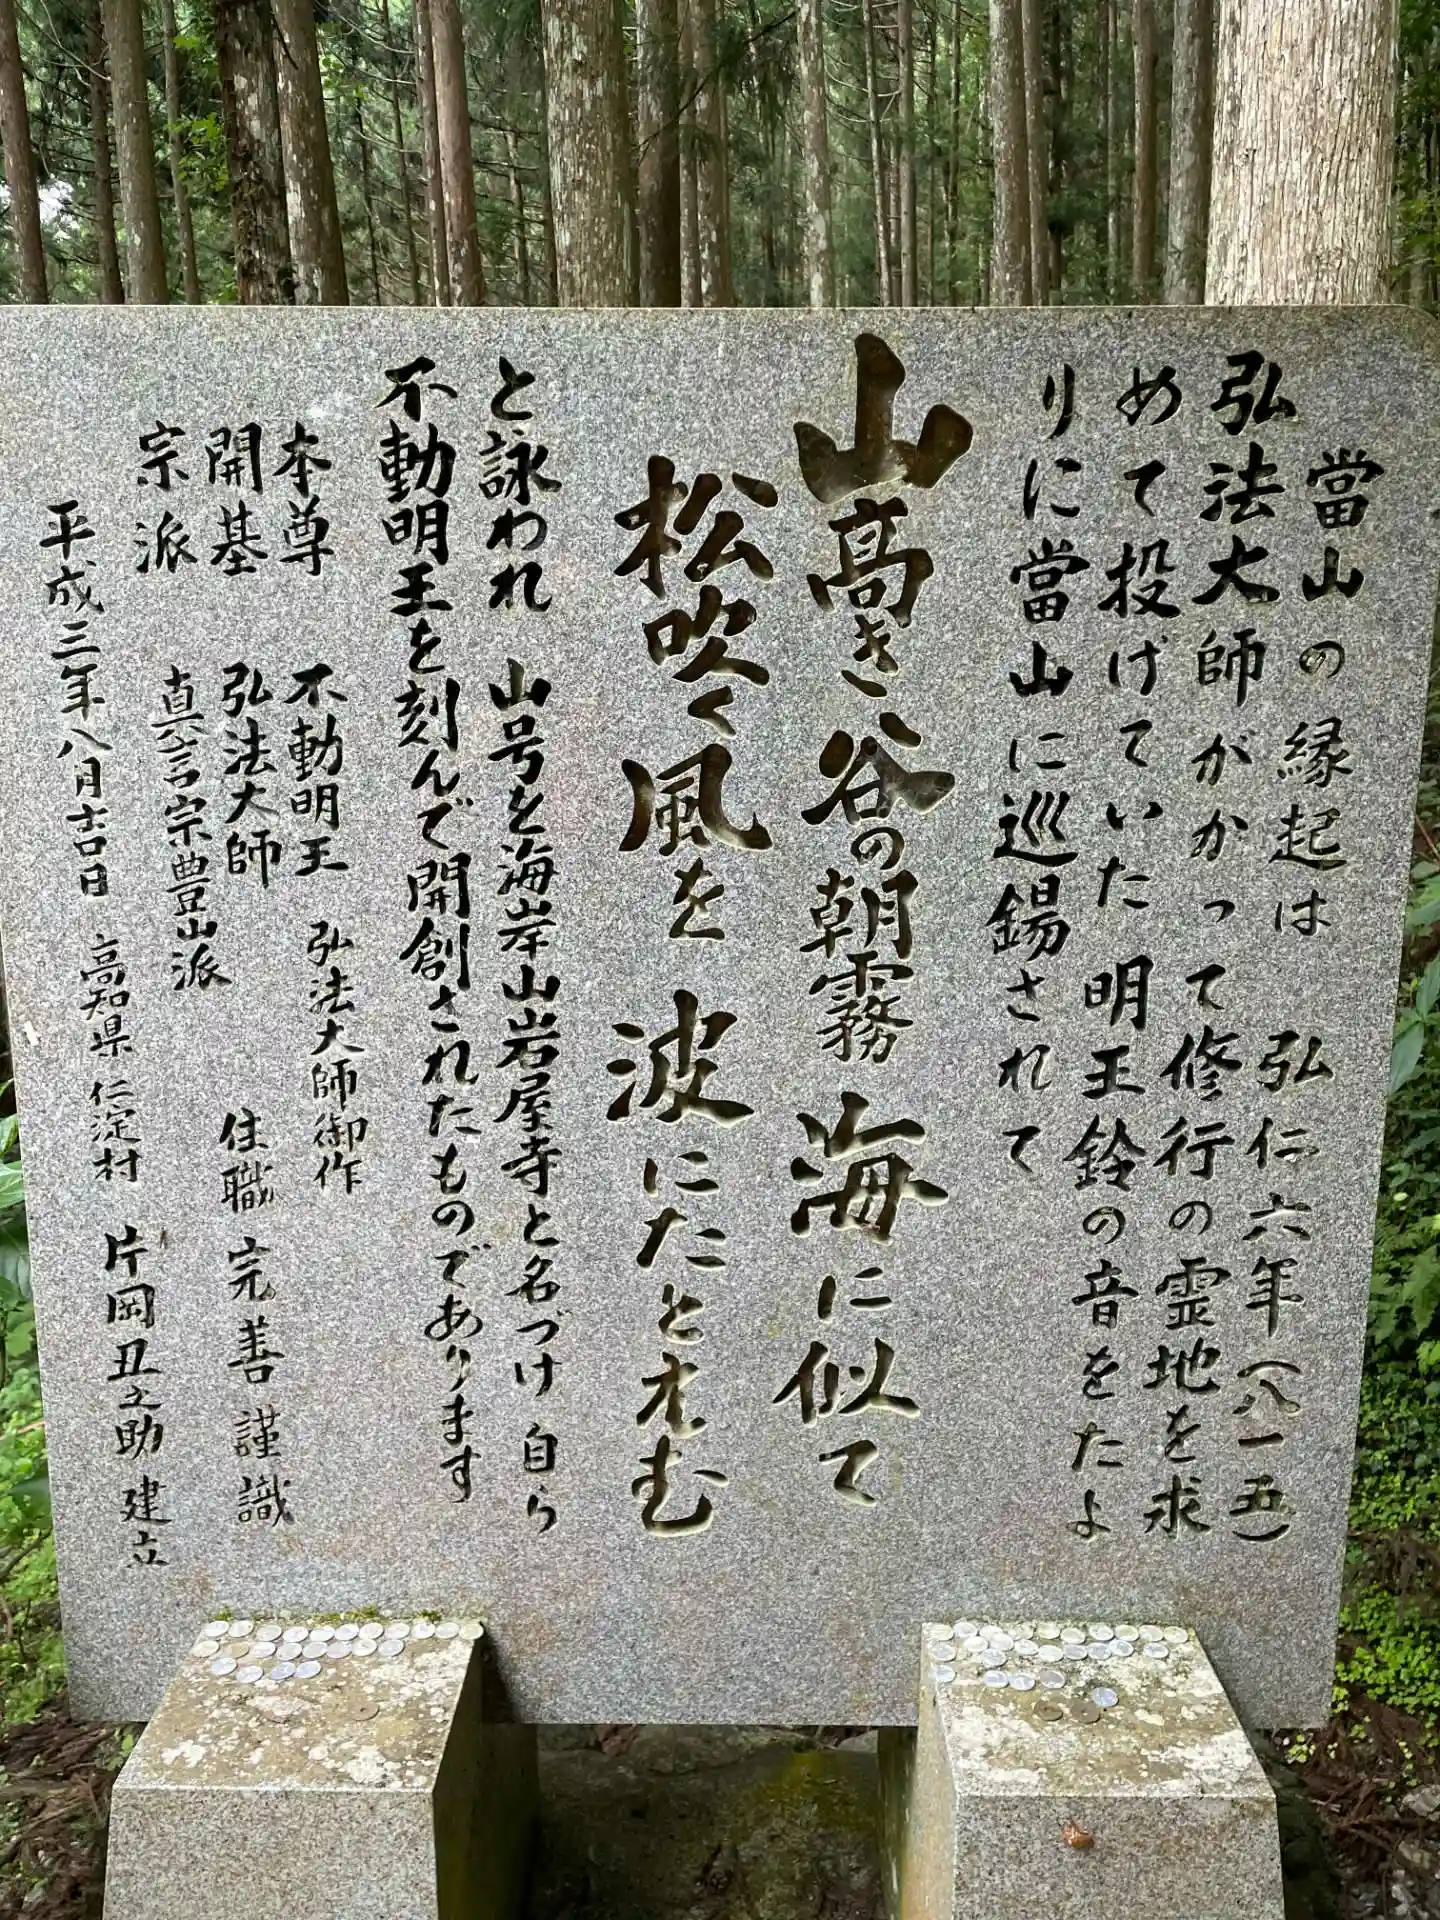 當山の縁起は 弘仁六年(八一五)
弘法大師がかって修行の霊地を求
めて投げていた 明王鈴の音をたよ
りに當山に巡錫されて
山高き谷の朝霧 海に似て
松吹く風を 波にたとえむ
と詠われ 山号を海岸山岩屋寺と名づけ 自ら
不動明王を刻んで開創されたものであります
本尊 不動明王 弘法大師御作
開基 弘法大師 住職 完善 謹識
宗派 真言宗豊山派
平成三年八月吉日 高知県 仁淀村 片岡丑之助 建立